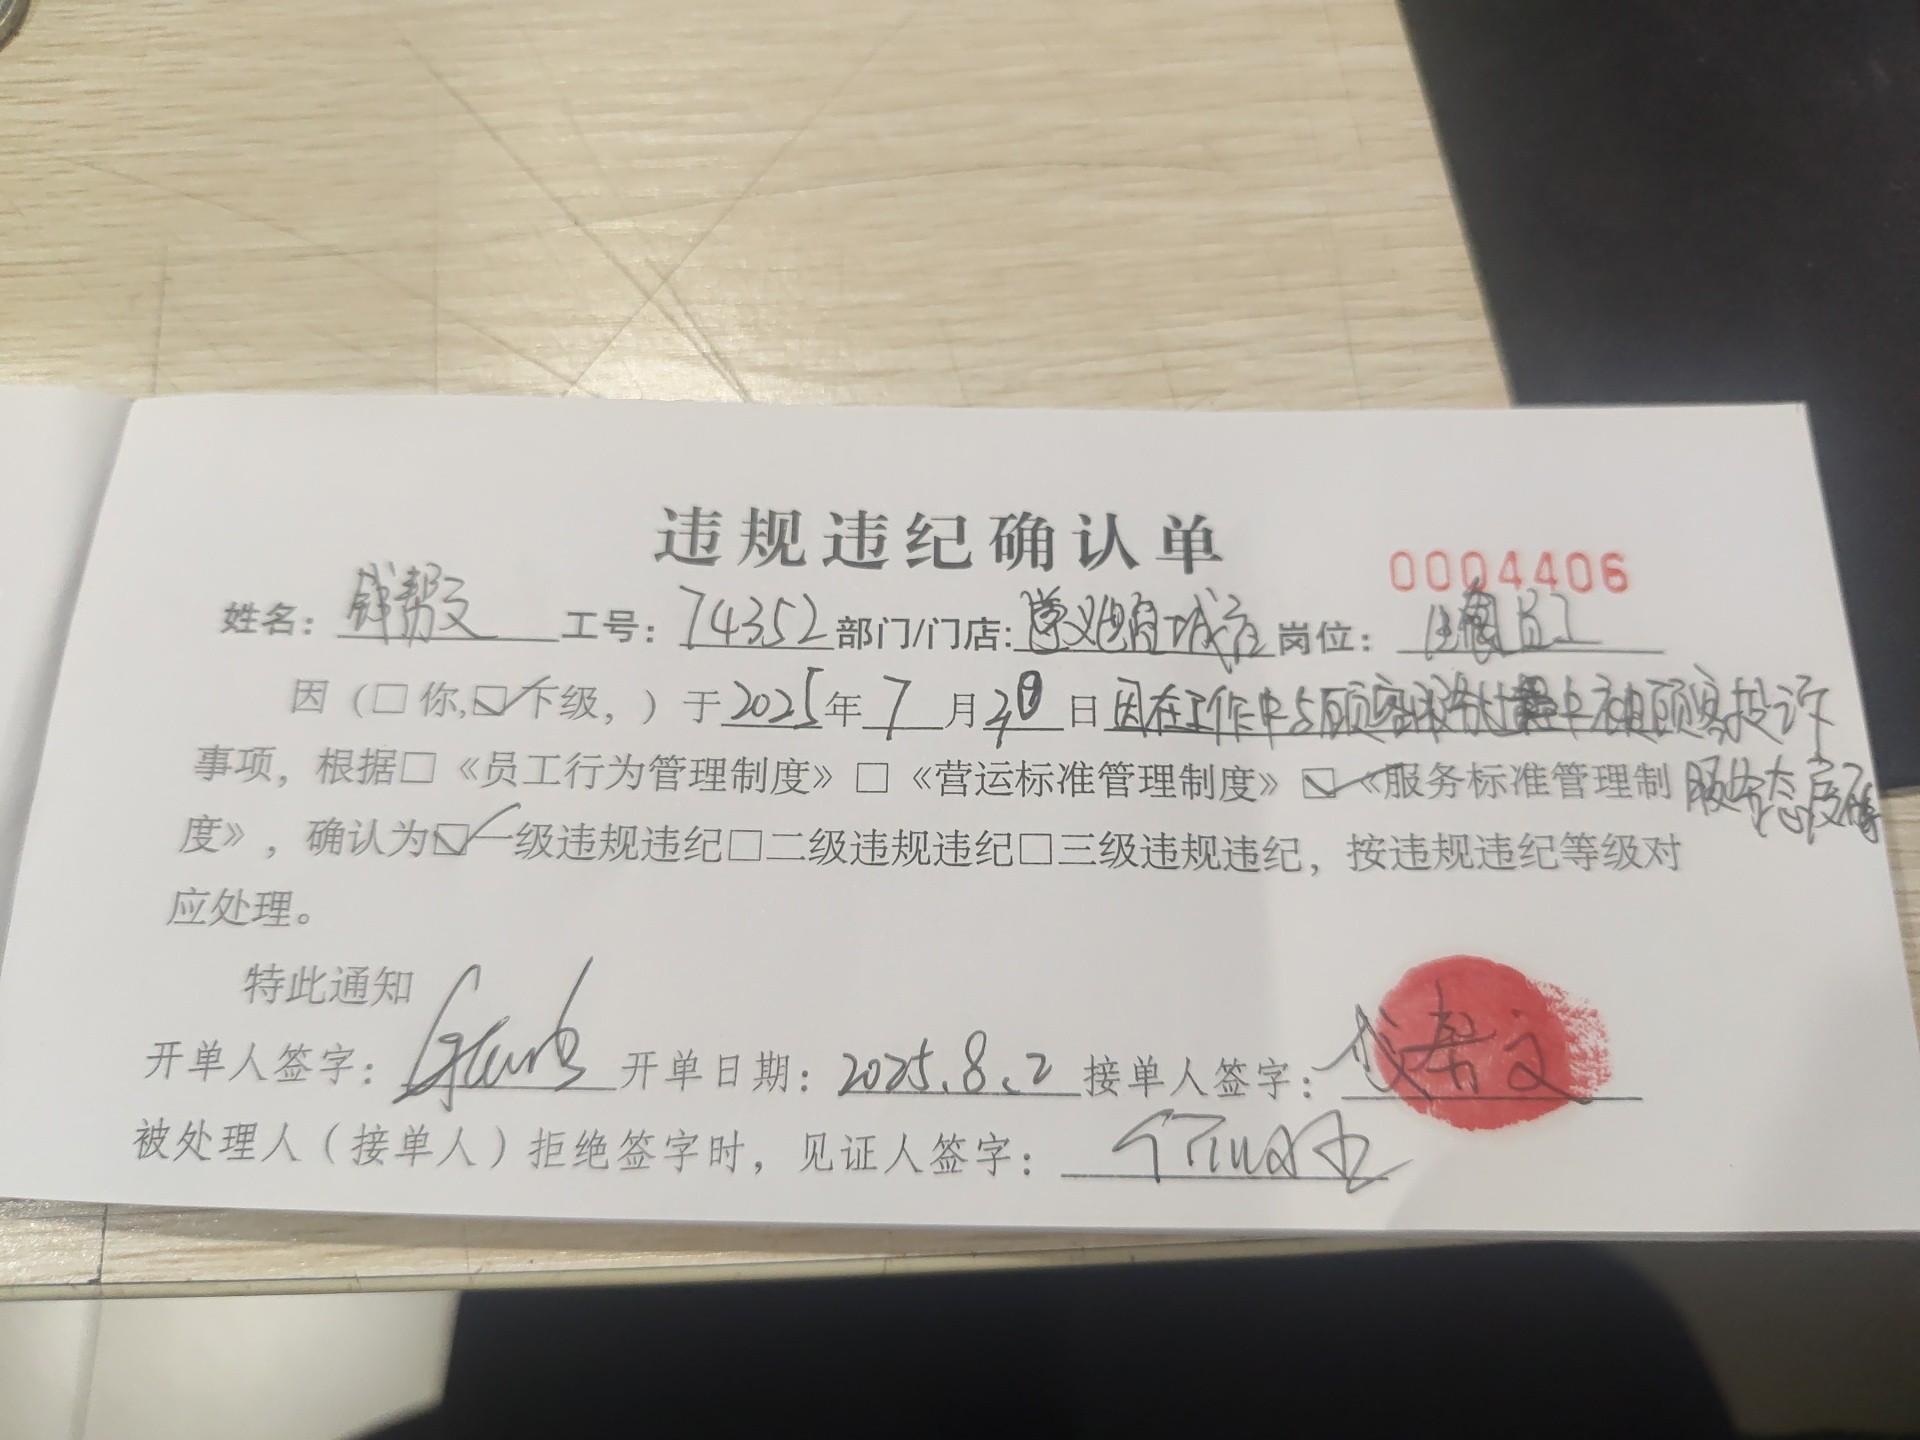 违规违纪确认单
0004406
姓名: 钱帮文 工号: 74352 部门/门店: 城店 岗位: 员工
因（□你,☑下级，）于2025年7月 日因在工作中与顾客 中被顾客投诉
事项，根据□《员工行为管理制度》□《营运标准管理制度》☑《服务标准管理制 服务态度
度》，确认为☑一级违规违纪□二级违规违纪□三级违规违纪，按违规违纪等级对
应处理。
特此通知
开单人签字: 开单日期: 2025.8.2 接单人签字: 钱帮文
被处理人（接单人）拒绝签字时，见证人签字: